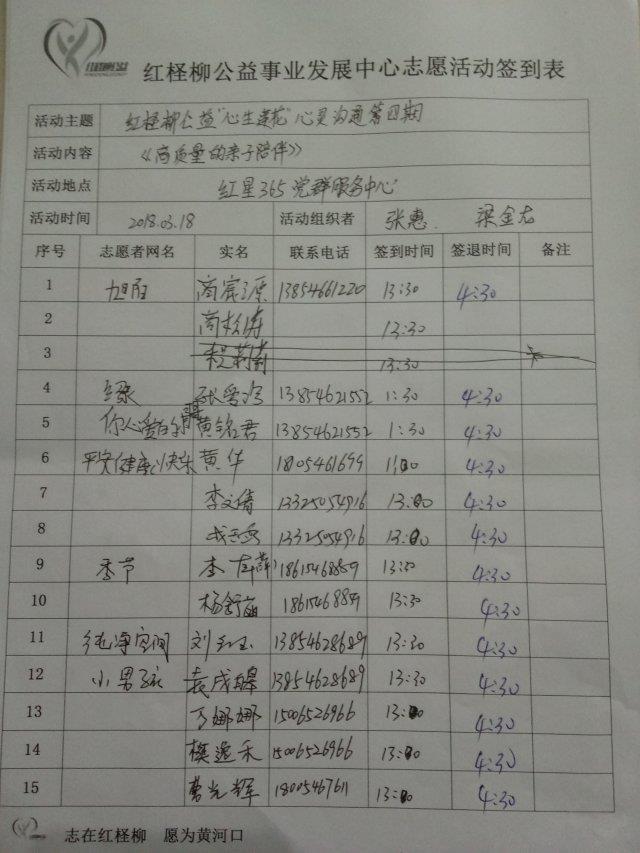 红柽柳公益事业发展中心志愿活动签到表
活动主题 红柽柳公益"心生莲花"心灵沟通第四期
活动内容 《高质量的亲子陪伴》
活动地点 红星365党群服务中心
活动时间 2018.03.18 活动组织者 张惠 梁金龙
序号 志愿者网名 实名 联系电话 签到时间 签退时间 备注
1 13854661220 13:30 4:30
2 13:30
3 13:30
4 13854621552 1:30 4:30
5 黄铭君 13854621552 1:30 4:30
6 平安健康快乐 黄华 4:30
7 李文倩 13325054916 13:00 4:30
8 13325054916 13:00 4:30
9 季节 李 18615468859 13:30 4:30
10 杨舒 18615468859 13:30 4:30
11 纯净空间 刘 13854628689 13:30 4:30
12 小男孩 袁成皞 13854628689 13:30 4:30
13 丁娜娜 15006526966 13:00 4:30
14 樊逸禾 15006526966 13:00 4:30
15 曹光辉 18005467611 13:00 4:30
志在红柽柳 愿为黄河口